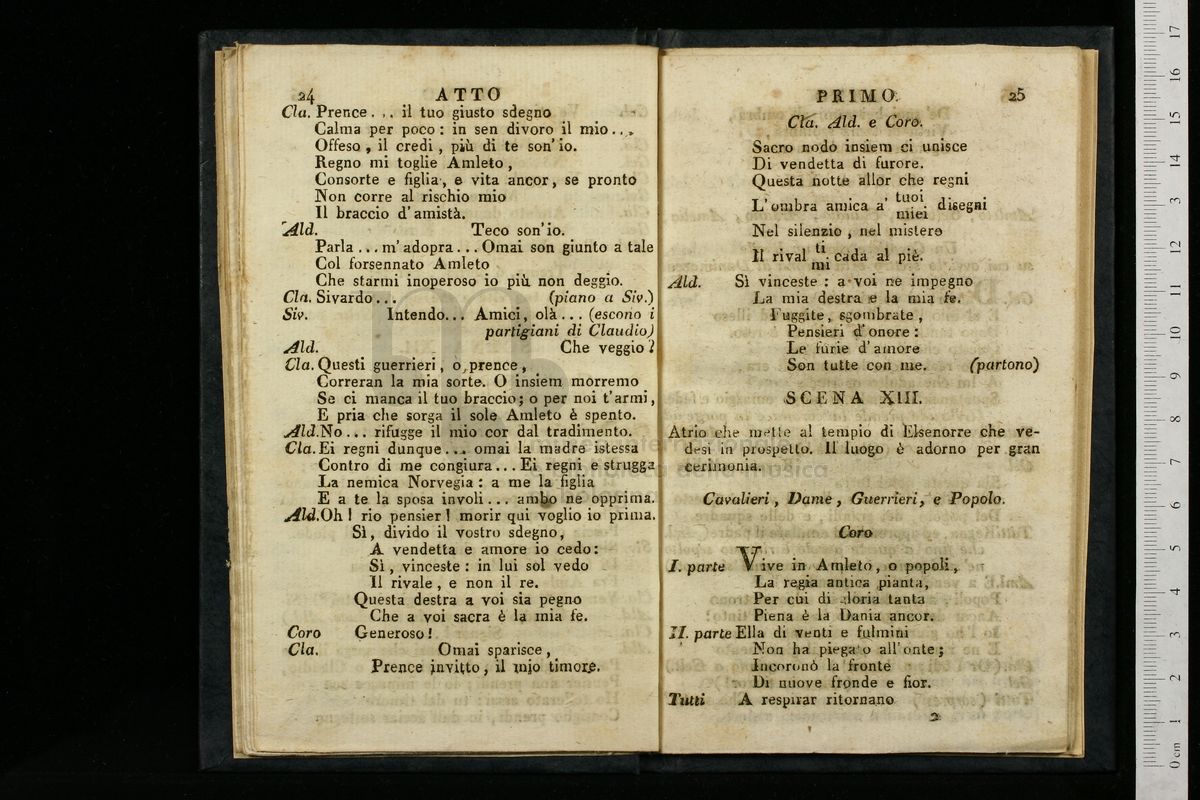 24 ATTO
Cla. Prence... il tuo giusto sdegno
Calma per poco: in sen divoro il mio...
Offeso, il credi, più di te son'io.
Regno mi toglie Amleto,
Consorte e figlia, e vita ancor, se pronto
Non corre al rischio mio
Il braccio d'amistà.
Ald. Teco son'io.
Parla... m'adopra... Omai son giunto a tale
Col forsennato Amleto
Che starmi inoperoso io più non deggio.
Cla. Sivardo... (piano a Siv.)
Siv. Intendo... Amici, olà... (escono i
partigiani di Claudio)
Ald. Che veggio?
Cla. Questi guerrieri, o prence,
Correran la mia sorte. O insiem morremo
Se ci manca il tuo braccio; o per noi t'armi,
E pria che sorga il sole Amleto è spento.
Ald. No... rifugge il mio cor dal tradimento.
Cla. Ei regni dunque... omai la madre istessa
Contro di me congiura... Ei regni e strugga
La nemica Norvegia: a me la figlia
E a te la sposa involi... ambo ne opprima.
Ald. Oh! rio pensier! morir qui voglio io prima.
Sì, divido il vostro sdegno,
A vendetta e amore io cedo:
Sì, vinceste: in lui sol vedo
Il rivale, e non il re.
Questa destra a voi sia pegno
Che a voi sacra è la mia fe.
Coro Generoso!
Cla. Omai sparisce,
Prence invitto, il mio timore.
PRIMO. 25
Cla. Ald. e Coro.
Sacro nodo insiem ci unisce
Di vendetta di furore.
Questa notte allor che regni
L'ombra amica a' tuoi disegni
miei
Nel silenzio, nel mistero
Il rival ti cada al piè.
mi
Ald. Sì vinceste: a voi ne impegno
La mia destra e la mia fe.
Fuggite, sgombrate,
Pensieri d'onore:
Le furie d'amore
Son tutte con me. (partono)
SCENA XIII.
Atrio che mette al tempio di Elsenorre che ve-
desi in prospetto. Il luogo è adorno per gran
cerimonia.
Cavalieri, Dame, Guerrieri, e Popolo.
Coro
I. parte Vive in Amleto, o popoli,
La regia antica pianta,
Per cui di gloria tanta
Piena è la Dania ancor.
II. parte Ella di venti e fulmini
Non ha piegato all'onte;
Incoronò la fronte
Di nuove fronde e fior.
Tutti A respirar ritornano
2
0 cm 1 2 3 4 5 6 7 8 9 10 11 12 13 14 15 16 17